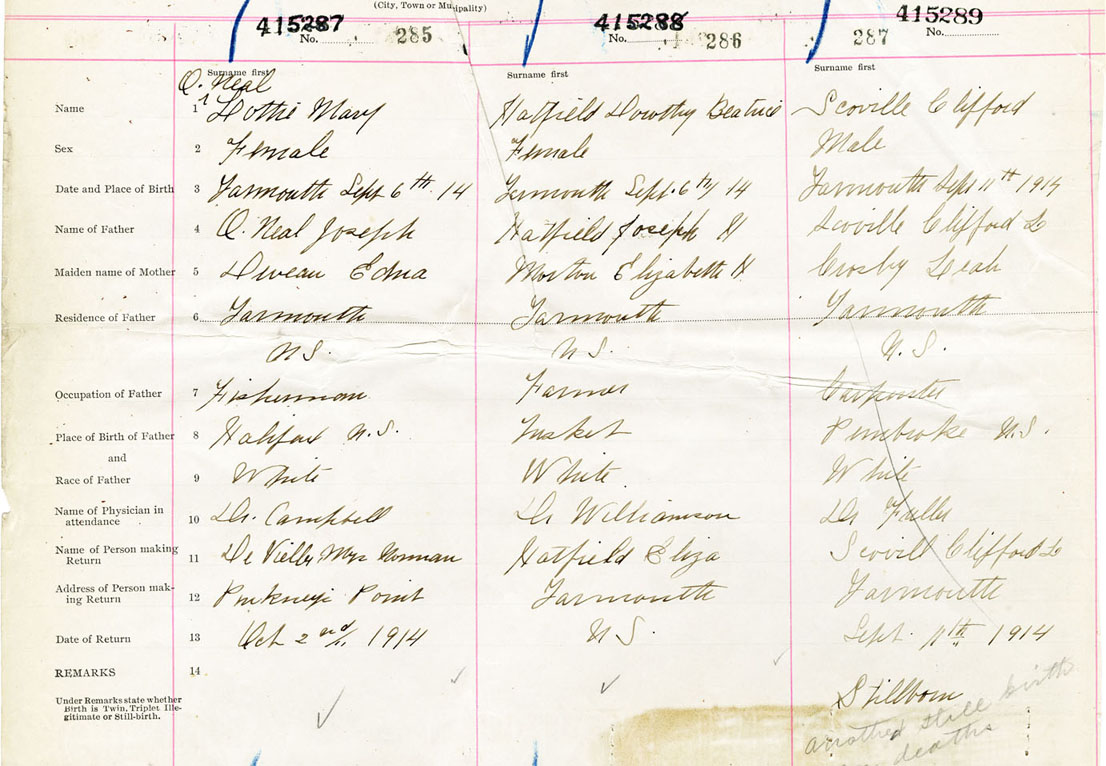 (City, Town or Municipality)
415287 415288 415289
No. 285 No. 286 287 No.
Surname first Surname first Surname first
O. Neal
Name 1 Dottie Mary Hatfield Dorothy Beatrice Scoville Clifford
Sex 2 Female Female Male
Date and Place of Birth 3 Yarmouth Sept 6th 14 Yarmouth Sept. 6th 14 Yarmouth Sept 11th 1914
Name of Father 4 O. Neal Joseph Hatfield Joseph H Scoville Clifford L
Maiden name of Mother 5 Deveau Edna Morton Elizabeth H Crosby Leah
Residence of Father 6 Yarmouth Yarmouth Yarmouth
N.S. N.S. N.S.
Occupation of Father 7 Fisherman Farmer Carpenter
Place of Birth of Father 8 Halifax N.S. Tusket Pembroke N.S.
and
Race of Father 9 White White White
Name of Physician in
attendance 10 Dr. Campbell Dr Williamson Dr Fuller
Name of Person making
Return 11 Mrs Norman Hatfield Eliza Scovill Clifford L
Address of Person mak-
ing Return 12 Pinkneys Point Yarmouth Yarmouth
Date of Return 13 Oct 2nd 1914 N.S. Sept. 1914
REMARKS 14
Under Remarks state whether
Birth is Twin, Triplet Ille-
gitimate or Still-birth.
Stillborn
another still birth
deaths